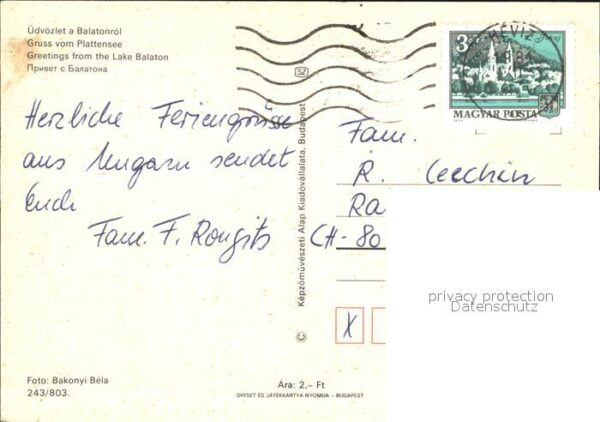 Üdvözlet a Balatonról
Gruss vom Plattensee
Greetings from the Lake Balaton
Привет с Балатона
SZ
3 Ft
HÉVÍZ
MAGYAR POSTA
Herzliche Feriengrüsse
aus Ungarn sendet
Euch
Fam. F. Rongits
Képzőművészeti Alap Kiadóvállalata, Budapest
©
Fam.
R. Cecchin
Ra
CH-80
X
privacy protection
Datenschutz
Foto: Bakonyi Béla
243/803.
Ára: 2,- Ft
OFFSET ÉS JÁTÉKKÁRTYA NYOMDA - BUDAPEST